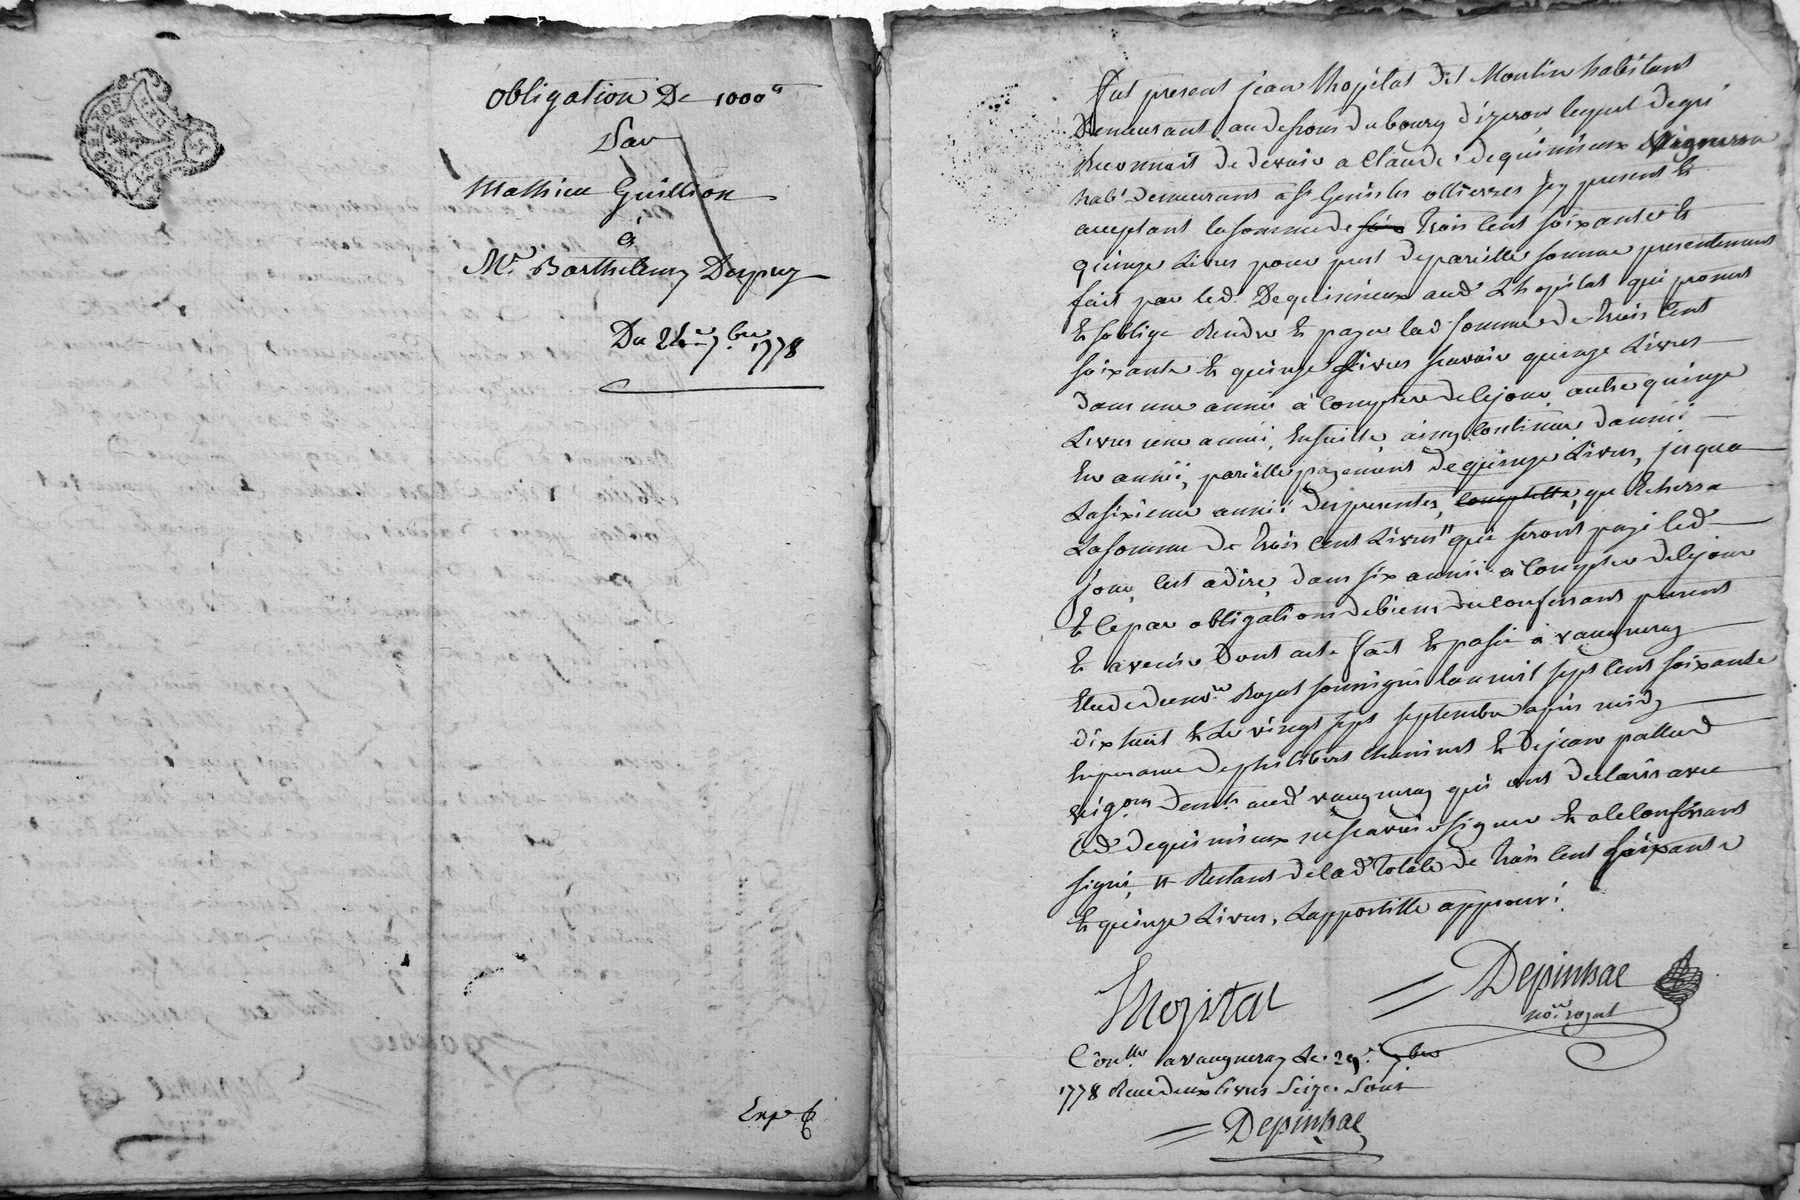 obligation De 1000ᵗᵗ
Par
Mathieu Guillion
à
Mʳ. Barthelemy Dupuy
Du 24ᵉ 7.bre 1778
Exp.
Fut present jean Lhopital dit Moulin habitant
Demeurant au dessous du bourg d'izeron lequel de gré
Reconnait de devoir a Claude dequinnieux Vigneron
hab.t demeurant à st Genis les ollierres icy present et
acceptant la somme de six trois cent soixante et
quinze Livres pour prest de pareille somme presentement
fait par led. Dequinnieux aud. Lhopital qui promet
et soblige Rendre et payer lad. somme de trois cent
soixante et quinze Livres scavoir quinze Livres
dans une année à Compter de ce jour, autre quinze
Livres une année Ensuitte ainsy Continuer d'année
En année, pareille payement de quinze Livres, jusqua
La sixieme année des presentes, Complette, que Echerra
La somme de trois Cent Livres" qui seront payé led.
jour, Cest adire, dans six année à Compter de ce jour
Et ce par obligations de biens du Confessant present
Et avenir Dont acte fait Et passé à vaugneray
Etude du nore. Royal soussigné lan mil sept Cent soixante
dix huit Et Le vingt sept septembre après midy
En presence de philibert et de jean pallud
vigons. demts. aud. vaugneray qui ont declaré avec
led. dequinnieux ne scavoir signer Et a le Confessant
signé, " Restant de lad. totale de trois Cent soixante
Et quinze Livres, Lappostille approuvé.
Lhopital
Depinhac
nore. royal
Conllé. a vaugneray Le 29. 7.bre
1778 Reçu deux livres Seize Sous
Depinhac